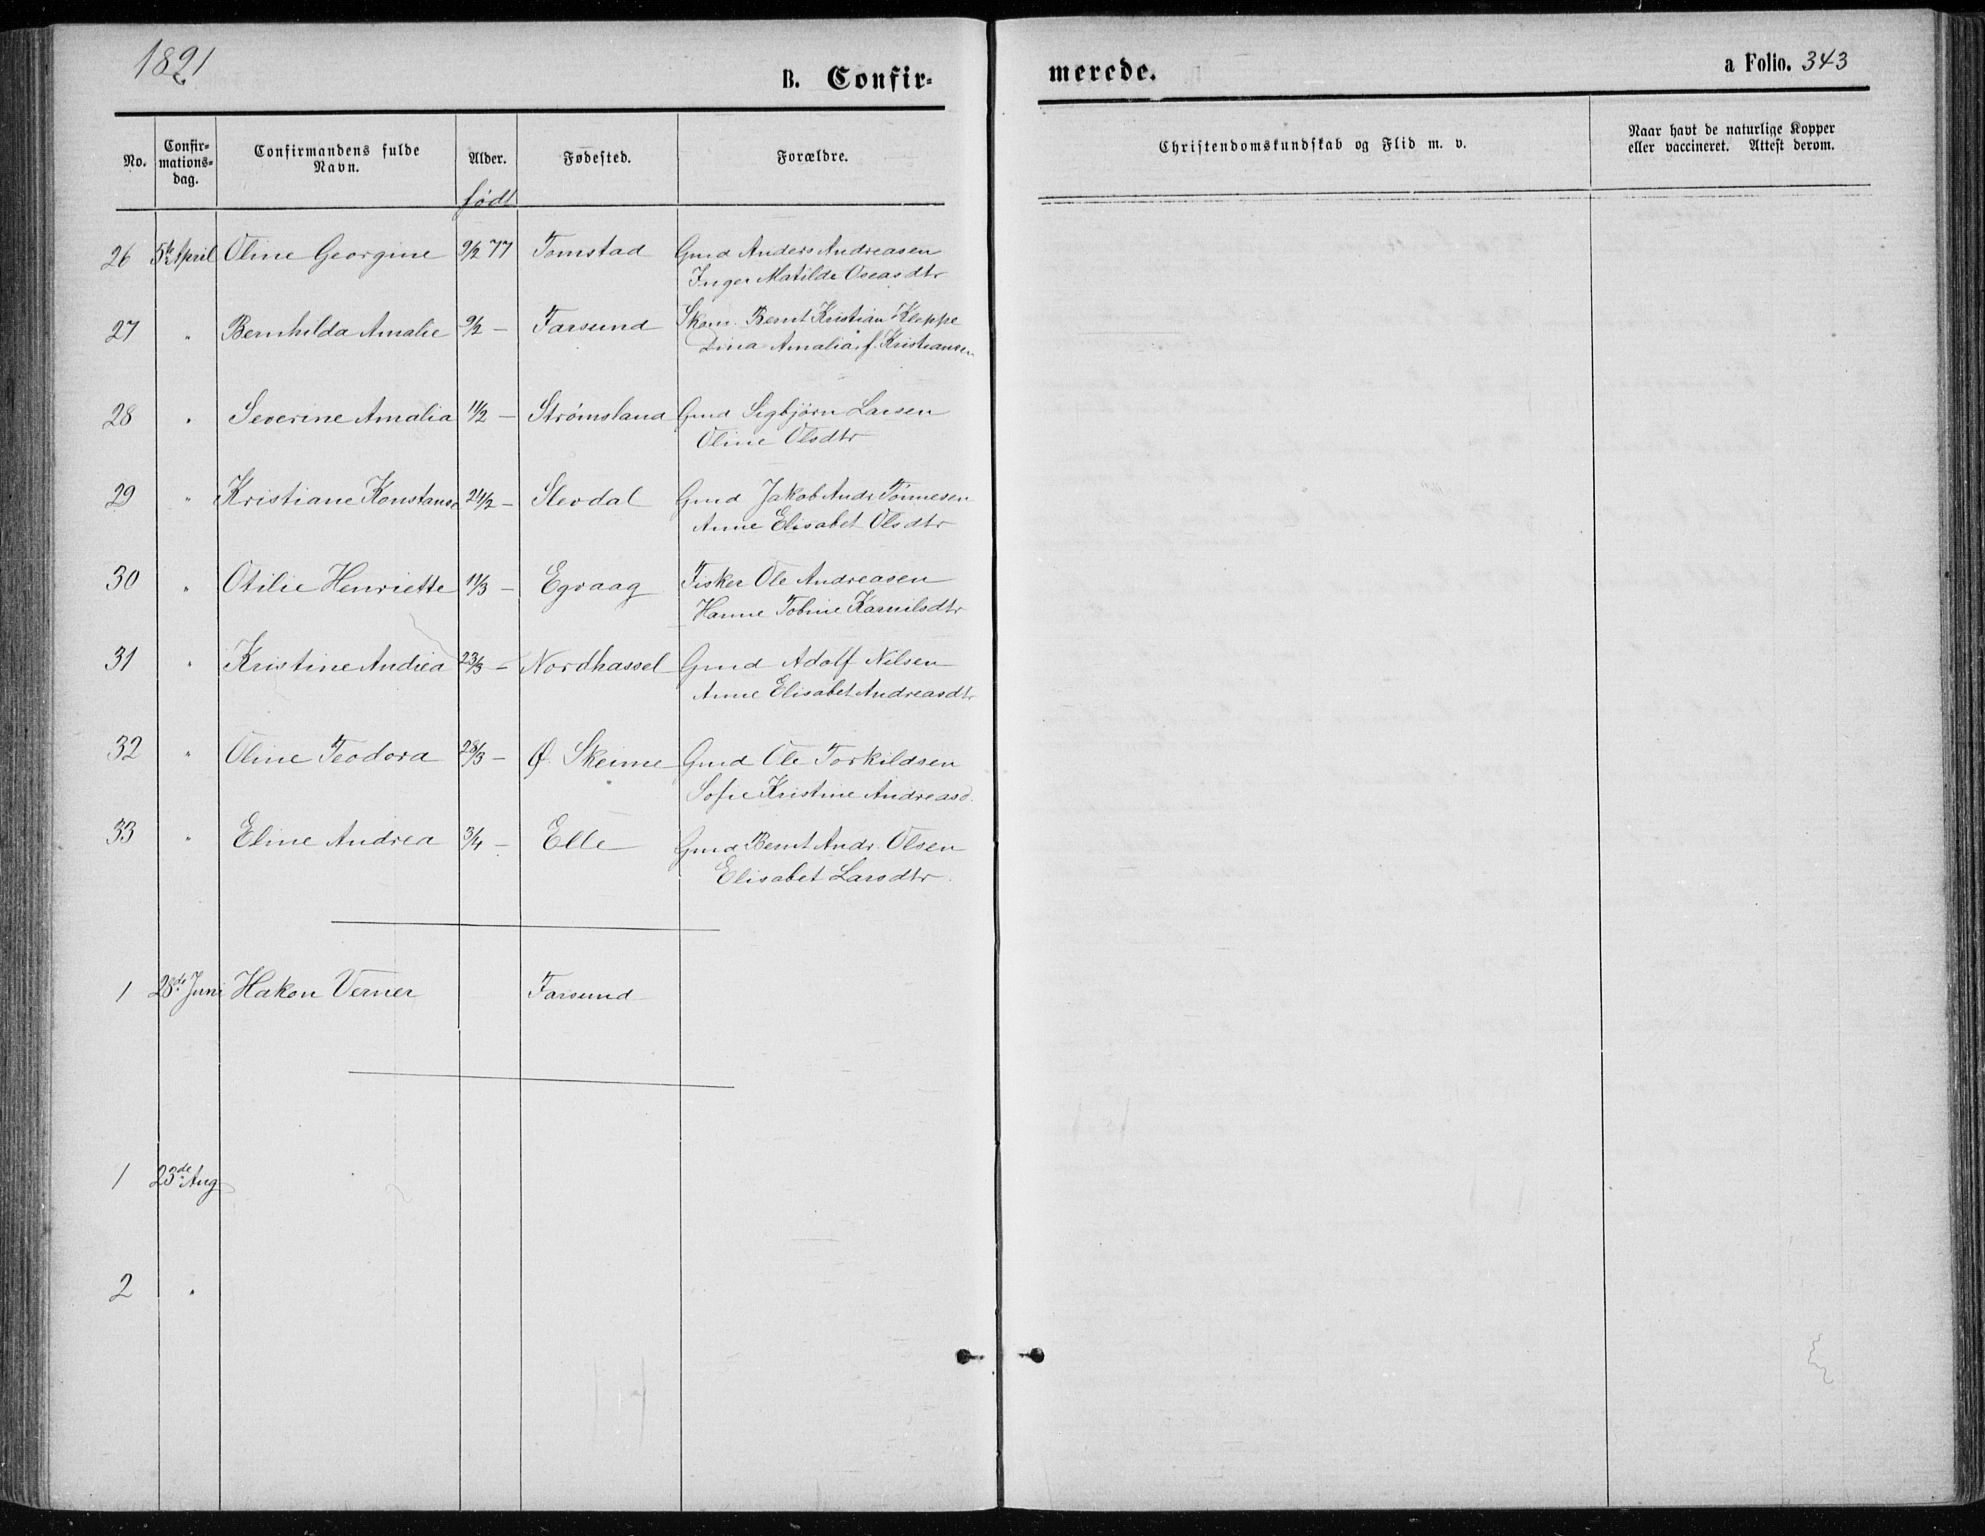 1891
B. Confir-
merede.
a Folio. 343
No.
Confir-
mations-
dag.
Confirmandens fulde
Navn.
Alder.
født
Fødested.
Forældre.
Christendomskundskab og Flid m. v.
Naar havt de naturlige Kopper
eller vaccineret. Attest derom.
26 5te April Oline Georgine 9/2 77 Tomstad Gmd Anders Andreasen
Inger Matilde Oseasdtr
27 " Bernhilda Amalie 9/2 — Farsund Skom. Bernt Kristian Kloppe
Lina Amalia f. Kristiansen
28 " Severine Amalia 11/2 — Strømsland Gmd Sigbjørn Larsen
Oline Olsdtr
29 " Kristiane Konstanse 24/2 — Slevdal Gmd Jakob Andr. Tønnesen
Anne Elisabet Olsdtr
30 " Otilie Henriette 11/3 — Egvaag Fisker Ole Andreasen
Hanne Tobine Kamilsdtr
31 " Kristine Andrea 23/3 — Nordhassel Gmd Adolf Nilsen
Anne Elisabet Andreasdtr
32 " Oline Teodora 28/3 — Ø. Skeime Gmd Ole Torkildsen
Sofie Kristine Andreasd.
33 " Eline Andrea 3/4 — Elle Gmd Bernt Andr. Olsen
Elisabet Larsdtr.
1 28de Juni Hakon Verner Farsund
1 23de Aug
2 "